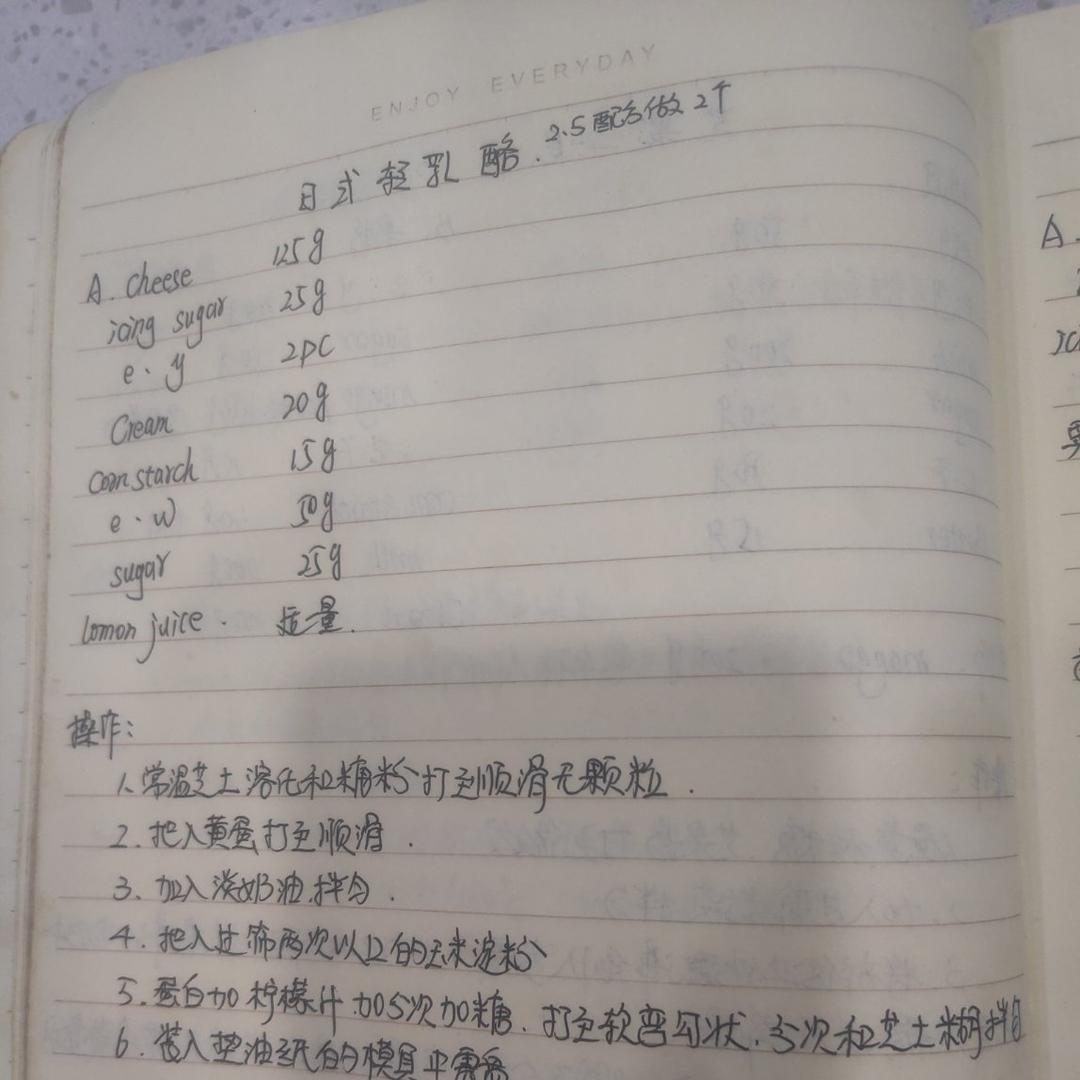 ENJOY EVERYDAY
日式轻乳酪. 2.5配方做2个
A. cheese 125g
icing sugar 25g
e.y 2PC
Cream 20g
corn starch 15g
e.w 50g
sugar 25g
lomon juice. 适量.
操作:
1. 常温芝士溶化和糖粉打到顺滑无颗粒.
2. 把入黄蛋打至顺滑.
3. 加入淡奶油,拌匀.
4. 把入过筛两次以上的玉米淀粉
5. 蛋白加柠檬汁.加5次加糖.打至软弯勾状.分次和芝士糊拌匀
6. 装入垫油纸的模具平
A.